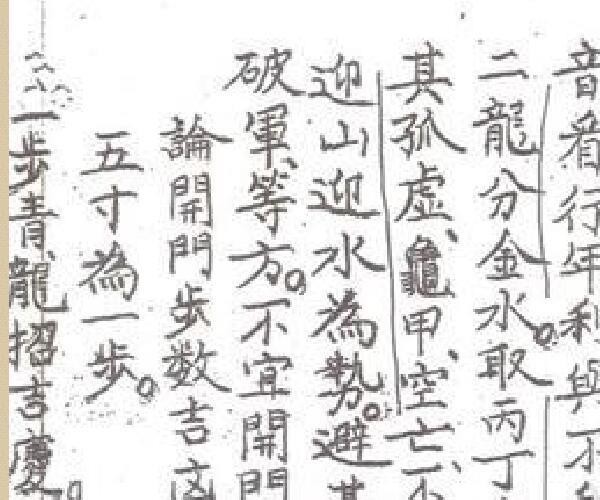 音看行年利與不
二龍分金水。取丙丁
其孤虛、龜甲、空亡、不
迎山迎水為勢。避其
破軍、等方。不宜開門
論開門步数吉凶
五寸為一步。
一步青龍招吉慶。